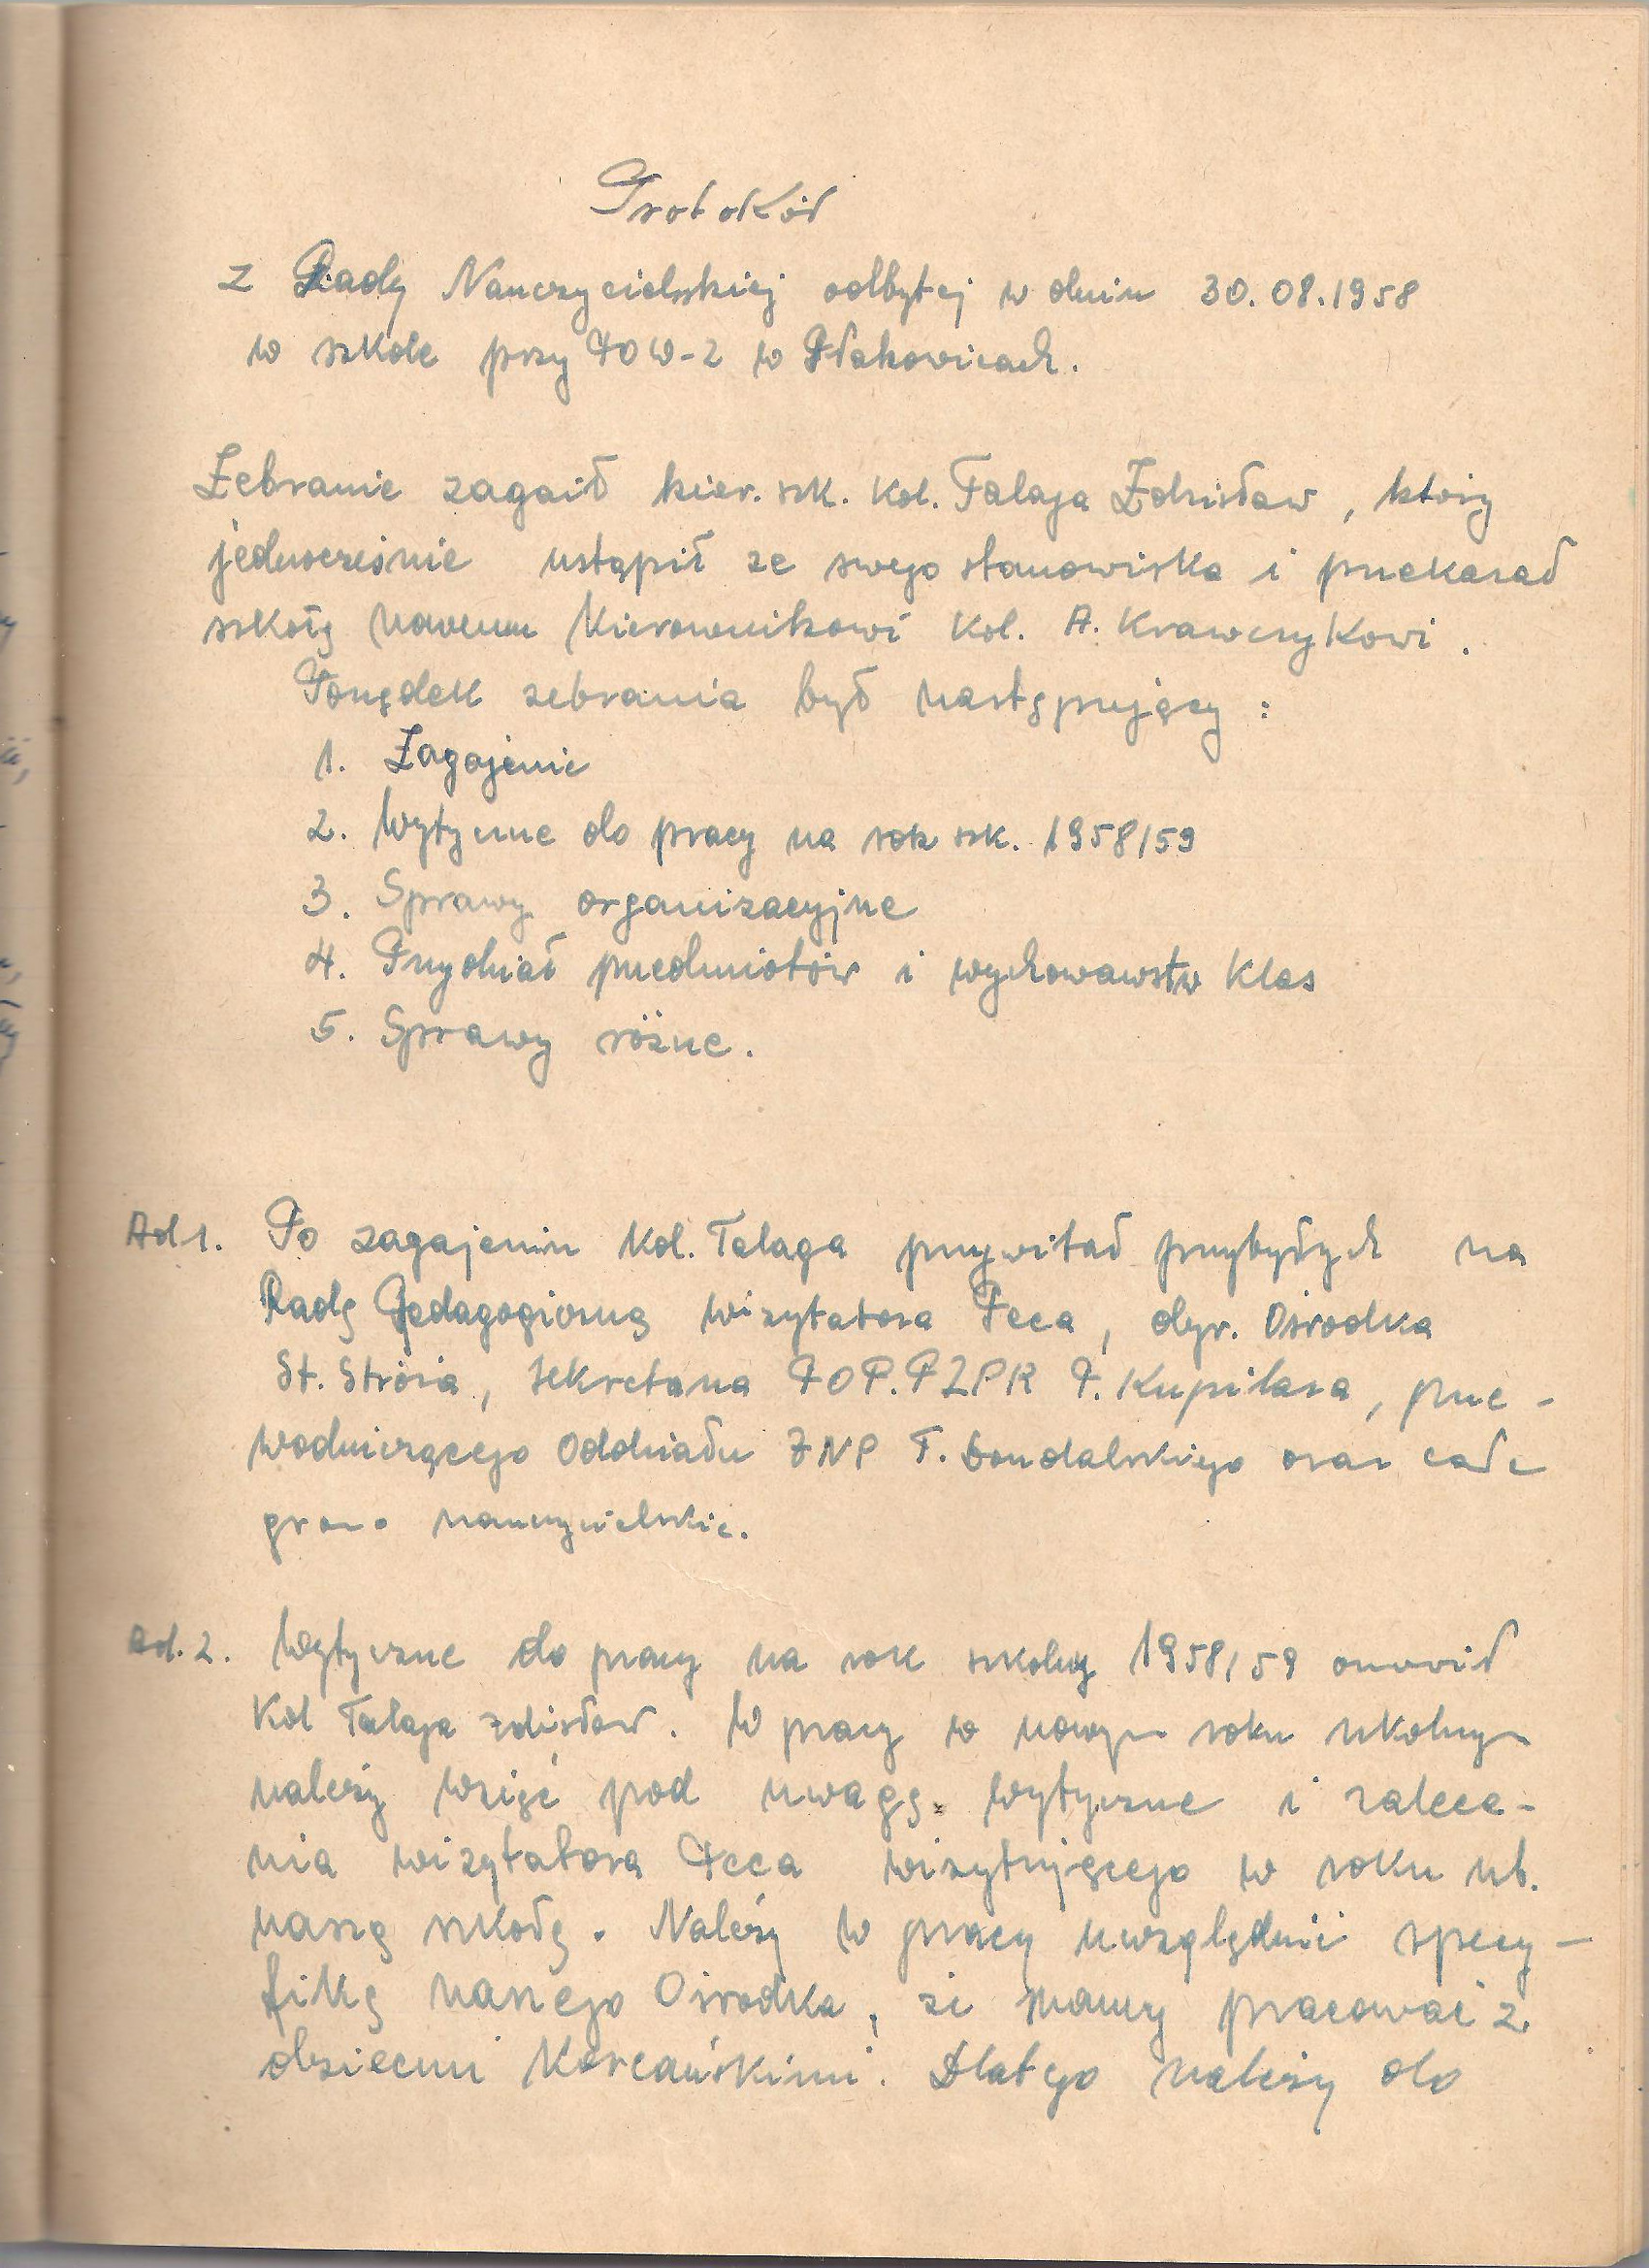 Protokół
z Rady Nauczycielskiej odbytej w dniu 30.08.1958
w szkole przy POW-2 w Płakowicach.
Zebranie zagaił kier. szk. kol. Talaga Zdzisław, który
jednocześnie ustąpił ze swego stanowiska i przekazał
szkołę nowemu Kierownikowi Kol. A. Krawczykowi.
Porządek zebrania był następujący:
1. Zagajenie
2. Wytyczne do pracy na rok szk. 1958/59
3. Sprawy organizacyjne
4. Przydział przedmiotów i wychowawstw klas
5. Sprawy różne.
Ad 1. Po zagajeniu Kol. Talaga przywitał przybyłych na
Radę Pedagogiczną wizytatora Peca, dyr. Ośrodka
St. Strózia, sekretarza POP. PZPR P. Kupilasa, prze-
wodniczącego Oddziału ZNP T. Dondalskiego oraz całe
grono nauczycielskie.
Ad. 2. Wytyczne do pracy na rok szkolny 1958/59 omówił
Kol Talaga Zdzisław. W pracy w nowym roku szkolnym
należy wziąć pod uwagę wytyczne i zalece-
nia wizytatora Peca wizytującego w roku ub.
naszą szkołę. Należy w pracy uwzględnić specy-
fikę naszego Ośrodka, że mamy pracować z
dziećmi Koreańskimi. Dlatego należy do